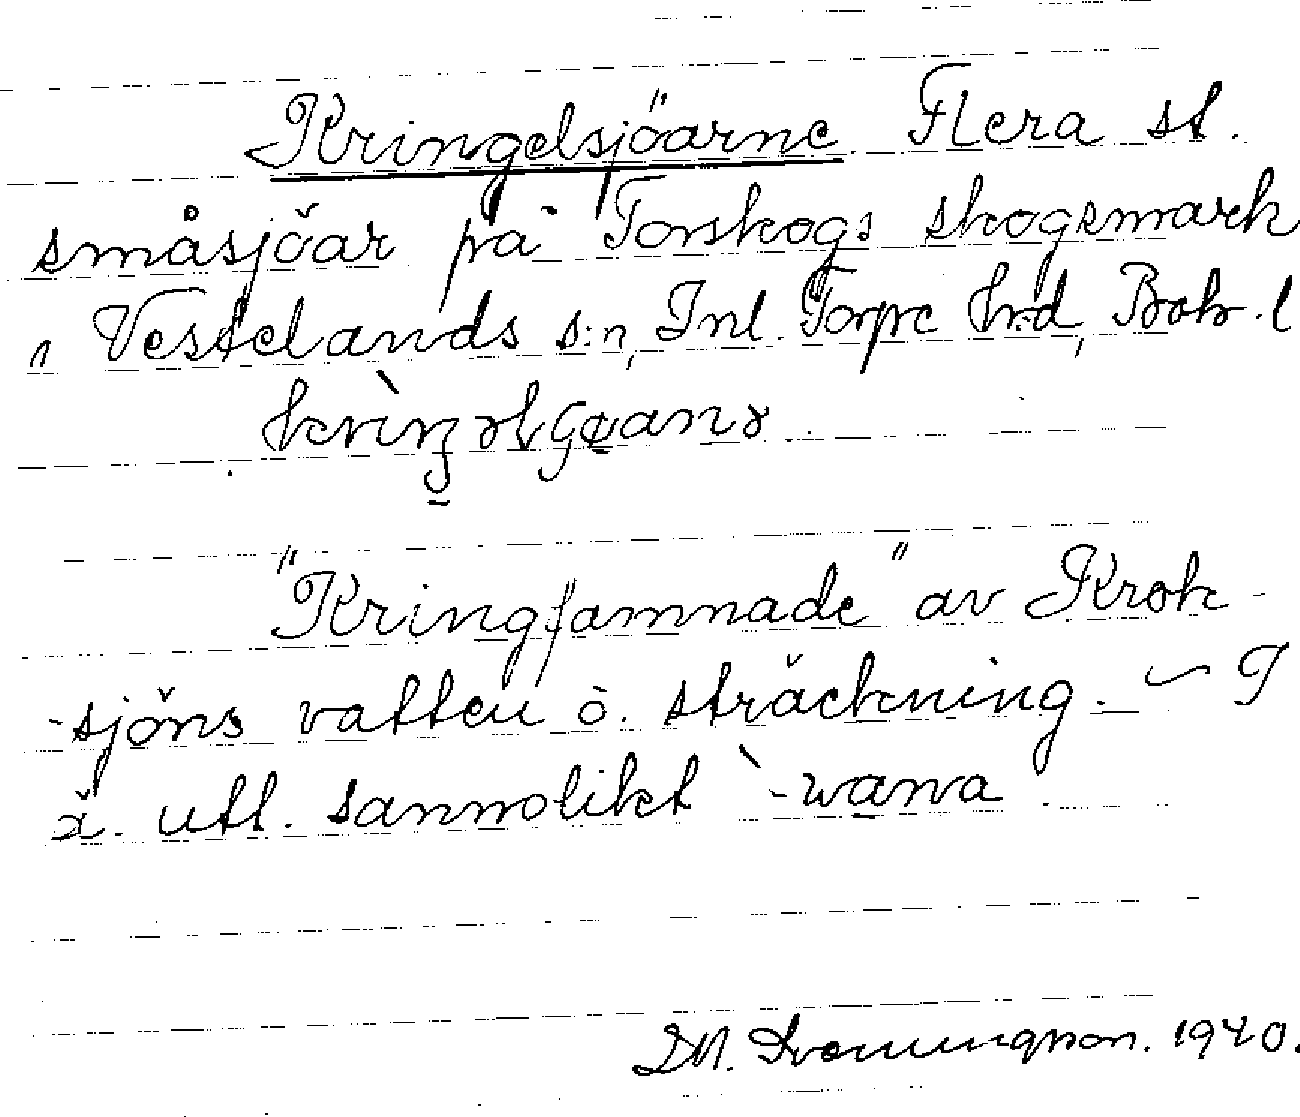 Kringelsjöarne Flera st.
småsjöar på Torskogs skogsmark
i Vestelands s:n, Inl. Torpe hrd, Boh. l
"Kringfamnade" av Krok-
-sjöns vatten o. sträckning. — I
ä. utt. sannolikt `-wana
1940.